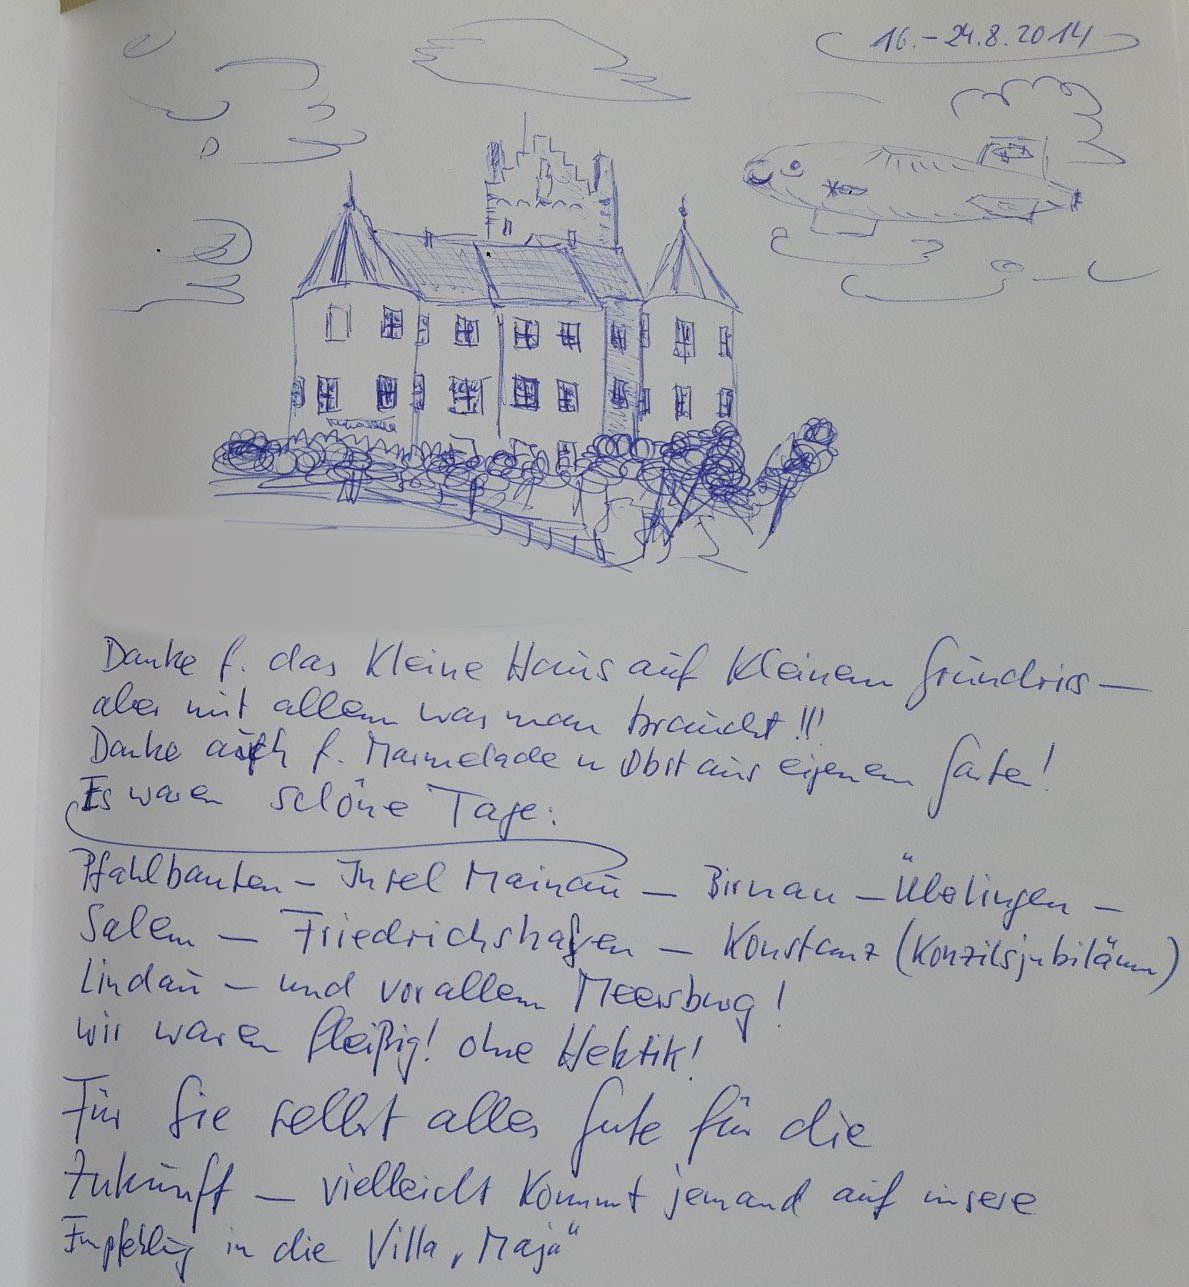 16.-24.8.2014
Danke f. das kleine Haus auf kleinem Grundriss —
aber mit allem was man braucht!!!
Danke auch f. Marmelade u Obst aus eigenem Garten!
Es waren schöne Tage:
Pfahlbauten - Insel Mainau - Birnau - Überlingen -
Salem - Friedrichshafen - Konstanz (Konzilsjubiläum)
Lindau - und vor allem Meersburg!
wir waren fleißig! ohne Hektik!
Für Sie selbst alles Gute für die
Zukunft - vielleicht kommt jemand auf unsere
Empfehlung in die Villa „Maja"